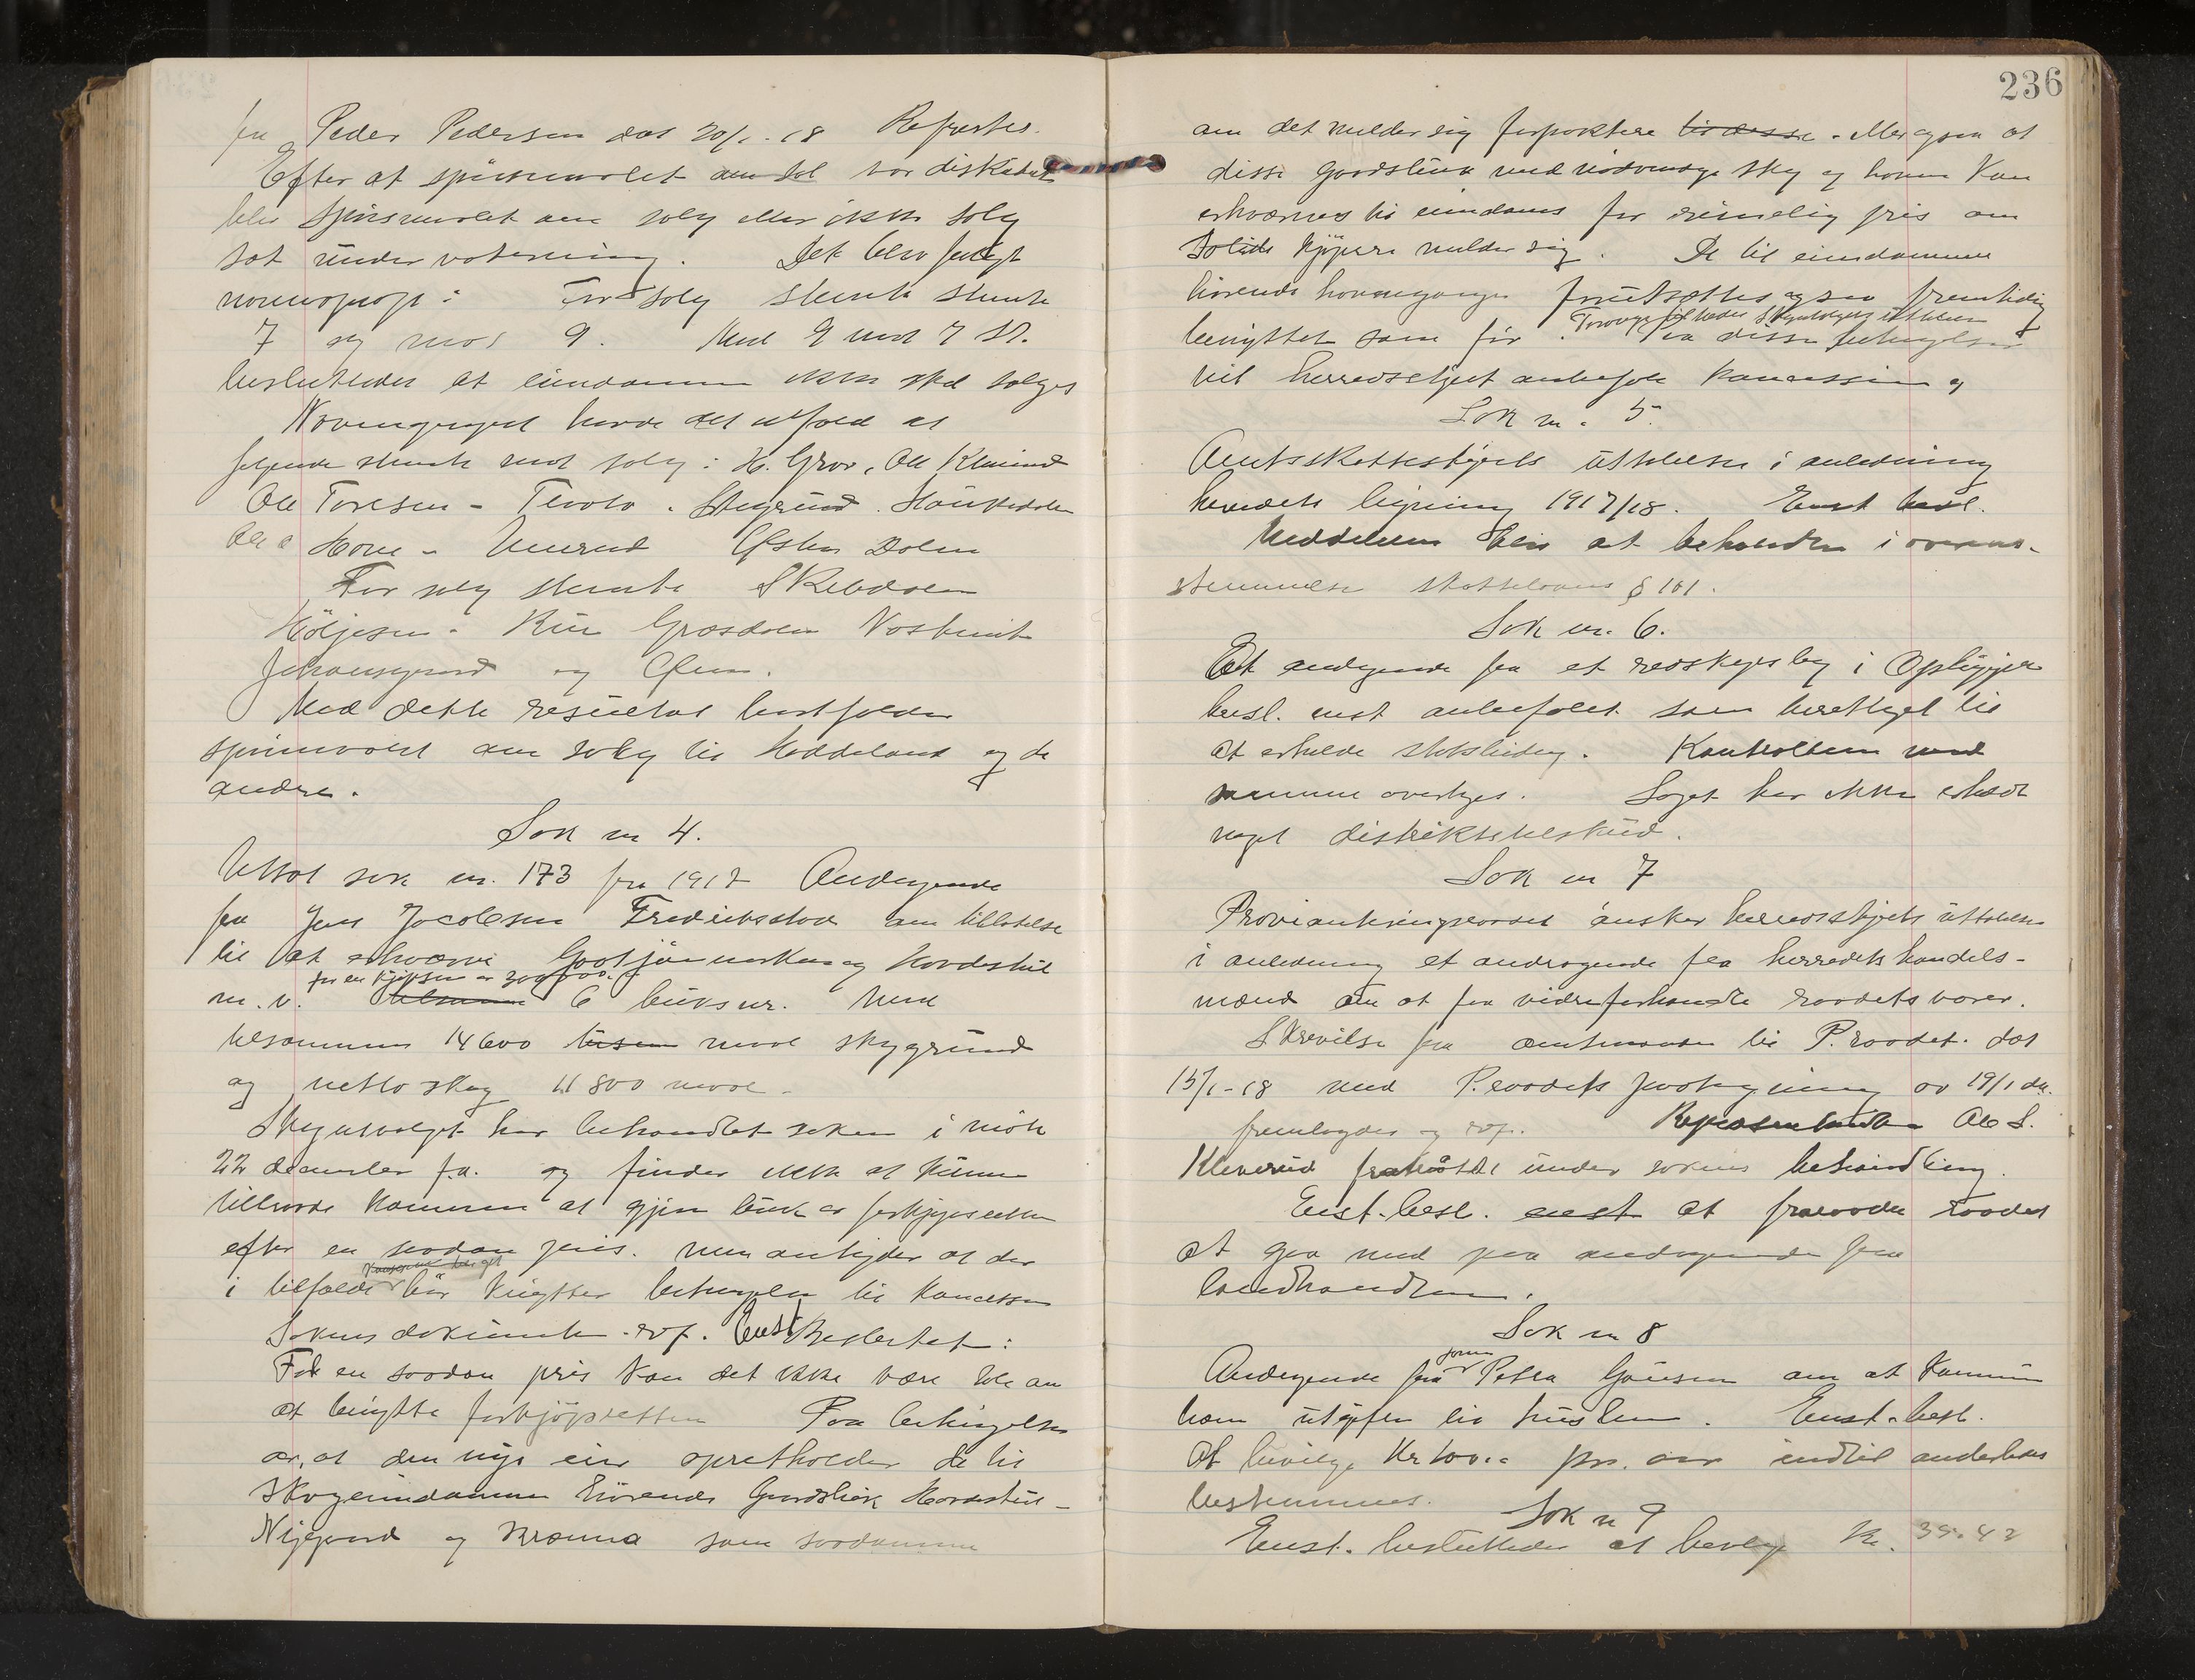 fra Peder Pedersen dat 20/1-18 Refertes.
Efter at spörsmaalet om sal var diskutert
blev spörsmaalet om salg eller ikke salg
sat under votering. Det blev foretat
navneoprop: For salg stemte stemte
7 og mot 9. Med 9 mot 7 st.
besluttedes at eiendommen ikke skal sælges
Navneopropet havde det utfald at
følgende stemte mot salg: H. Grov, Ole Kleverud
Ole Toresen - Tveota . Stugrud . Haukedalen
Ole Hove - Unnerud Østen Dolen
For salg stemte Skebdalen
Höljesen. Græsdalen
Johansgaard og
Med dette resultat bortfalder
spörsmaalet om salg til Heddeland og de
andre.
Sak nr 4.
Utsat sak nr. 173 fra 1917 Andragende
fra Jens Jacobsen Fredriksstad om tilladelse
til at erhverve og Hovdestul
for en kjöpesum av 300,000.
m.v. tilsammen 6 bruksnr. Med
tilsammen 14600 tusen maal skoggrund
og netto skog 11800 maal.
Skogutvalget har behandlet saken i møte
22 december f.a. og finder ikke at kunne
tilraade kommunen at gjøre bruk av forkjøpsretten
efter en saadan pris. men antyder at der
i tilfælde bör knyttes betingelser til konsession
Sakens dokumenter ref. Enst besluttet:
For en saadan pris kan det ikke være tale om
at benytte forkjöpsretten Paa betingelse
av, at den nye eier opretholder de til
Skogeiendommen hörende Gaardsbruk Hovdestul -
Nygaard og Kramma som saadanne
236
om det melder sig forpaktere til disse. Eller ogsaa at
disse gaardsbruk med nödvendige skog og havn kan
erhverves til eiendoms for rimelig pris om
Solide kjöpere melder sig. De til eiendommen
hörende havneganger forutsættes ogsaa fremtidig
benyttet som før. Paa disse betingelser
vil herredsstyret anbefale konsession
Sak nr. 5.
Amtsskattestyrets uttalelse i anledning
herredets ligning 1917/18. Enst besl.
Meddelelsen blir at behandle i overens-
stemmelse skatteloven § 101.
Sak nr. 6.
Et andragende fra et redskapslag i
besl. enst anbefalet som berettiget til
at erholde statsbidrag. Kontrollen med
samme overtages. Laget har ikke erholdt
noget distriktstilskud.
Sak nr 7
Provianteringsraadet önsker herredsstyrets uttalelse
i anledning et andragende fra herredets handels-
mænd om at faa videreforhandle raadets varer.
Skrivelse fra amtmanden til P. raadet. dat
15/1-18 med P.raadets paategning av 19/1 ds.
fremlagdes og ref. Repræsentanten Ole S.
Kleverud fratraadte under sakens behandling.
Enst. besl. enst at fraraade raadet
at gaa med paa andragende fra
landhandlerne.
Sak nr 8
Andragende fra Petra om at kommunen
Enst. besl.
At bevilge Kr 100.- pr. aar indtil anderledes
bestemmes.
Sak nr 9
Enst. besluttedes at bevilge Kr. 35.42